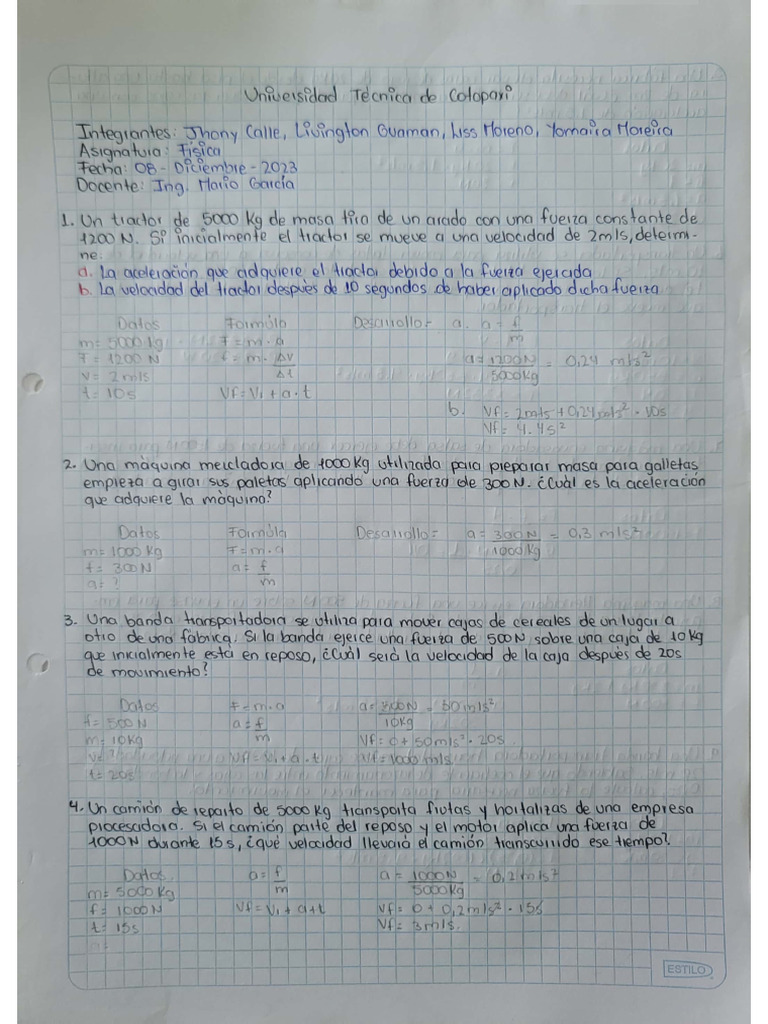 Universidad Técnica de Cotopaxi
Integrantes: Jhony Calle, Livington Guaman, Liss Moreno, Yomaira Moreira
Asignatura: Física
Fecha: 08 - Diciembre - 2023
Docente: Ing. Mario García
1. Un tractor de 5000 Kg de masa tira de un arado con una fuerza constante de
1200 N. Si inicialmente el tractor se mueve a una velocidad de 2m/s, determi-
ne:
a. La aceleración que adquiere el tractor debido a la fuerza ejercida
b. La velocidad del tractor después de 10 segundos de haber aplicado dicha fuerza
Datos Formúla Desarrollo:- a. a = f/m
m = 5000 kg F = m · a
F = 1200 N f = m · Δv/Δt a = 1200N/5000kg = 0,24 m/s²
v = 2m/s
t = 10s Vf = Vi + a · t
b. Vf = 2m/s + 0,24 m/s² · 10s
Vf = 4.4s²
2. Una máquina mezcladora de 1000 Kg utilizada para preparar masa para galletas
empieza a girar sus paletas aplicando una fuerza de 300 N. ¿Cuál es la aceleración
que adquiere la máquina?
Datos Formúla Desarrollo = a = 300N/1000kg = 0,3 m/s²
m = 1000 Kg F = m · a
f = 300N a = f/m
a = ?
3. Una banda transportadora se utiliza para mover cajas de cereales de un lugar a
otro de una fábrica. Si la banda ejerce una fuerza de 500N sobre una caja de 10kg
que inicialmente está en reposo, ¿Cuál será la velocidad de la caja después de 20s
de movimiento?
Datos F = m · a a = 500N/10kg = 50 m/s²
f = 500N a = f/m
m = 10kg Vf = 0 + 50m/s² · 20s
v = ? Vf = Vi + a · t Vf = 1000 m/s
t = 20s
4. Un camión de reparto de 5000 kg transporta frutas y hortalizas de una empresa
procesadora. Si el camión parte del reposo y el motor aplica una fuerza de
1000N durante 15s, ¿qué velocidad llevará el camión transcurrido ese tiempo?
Datos a = f/m a = 1000N/5000kg = 0,2 m/s²
m = 5000 Kg
f = 1000N Vf = Vi + a + t Vf = 0 + 0,2m/s² · 15s
t = 15s Vf = 3m/s.
a =
ESTILO